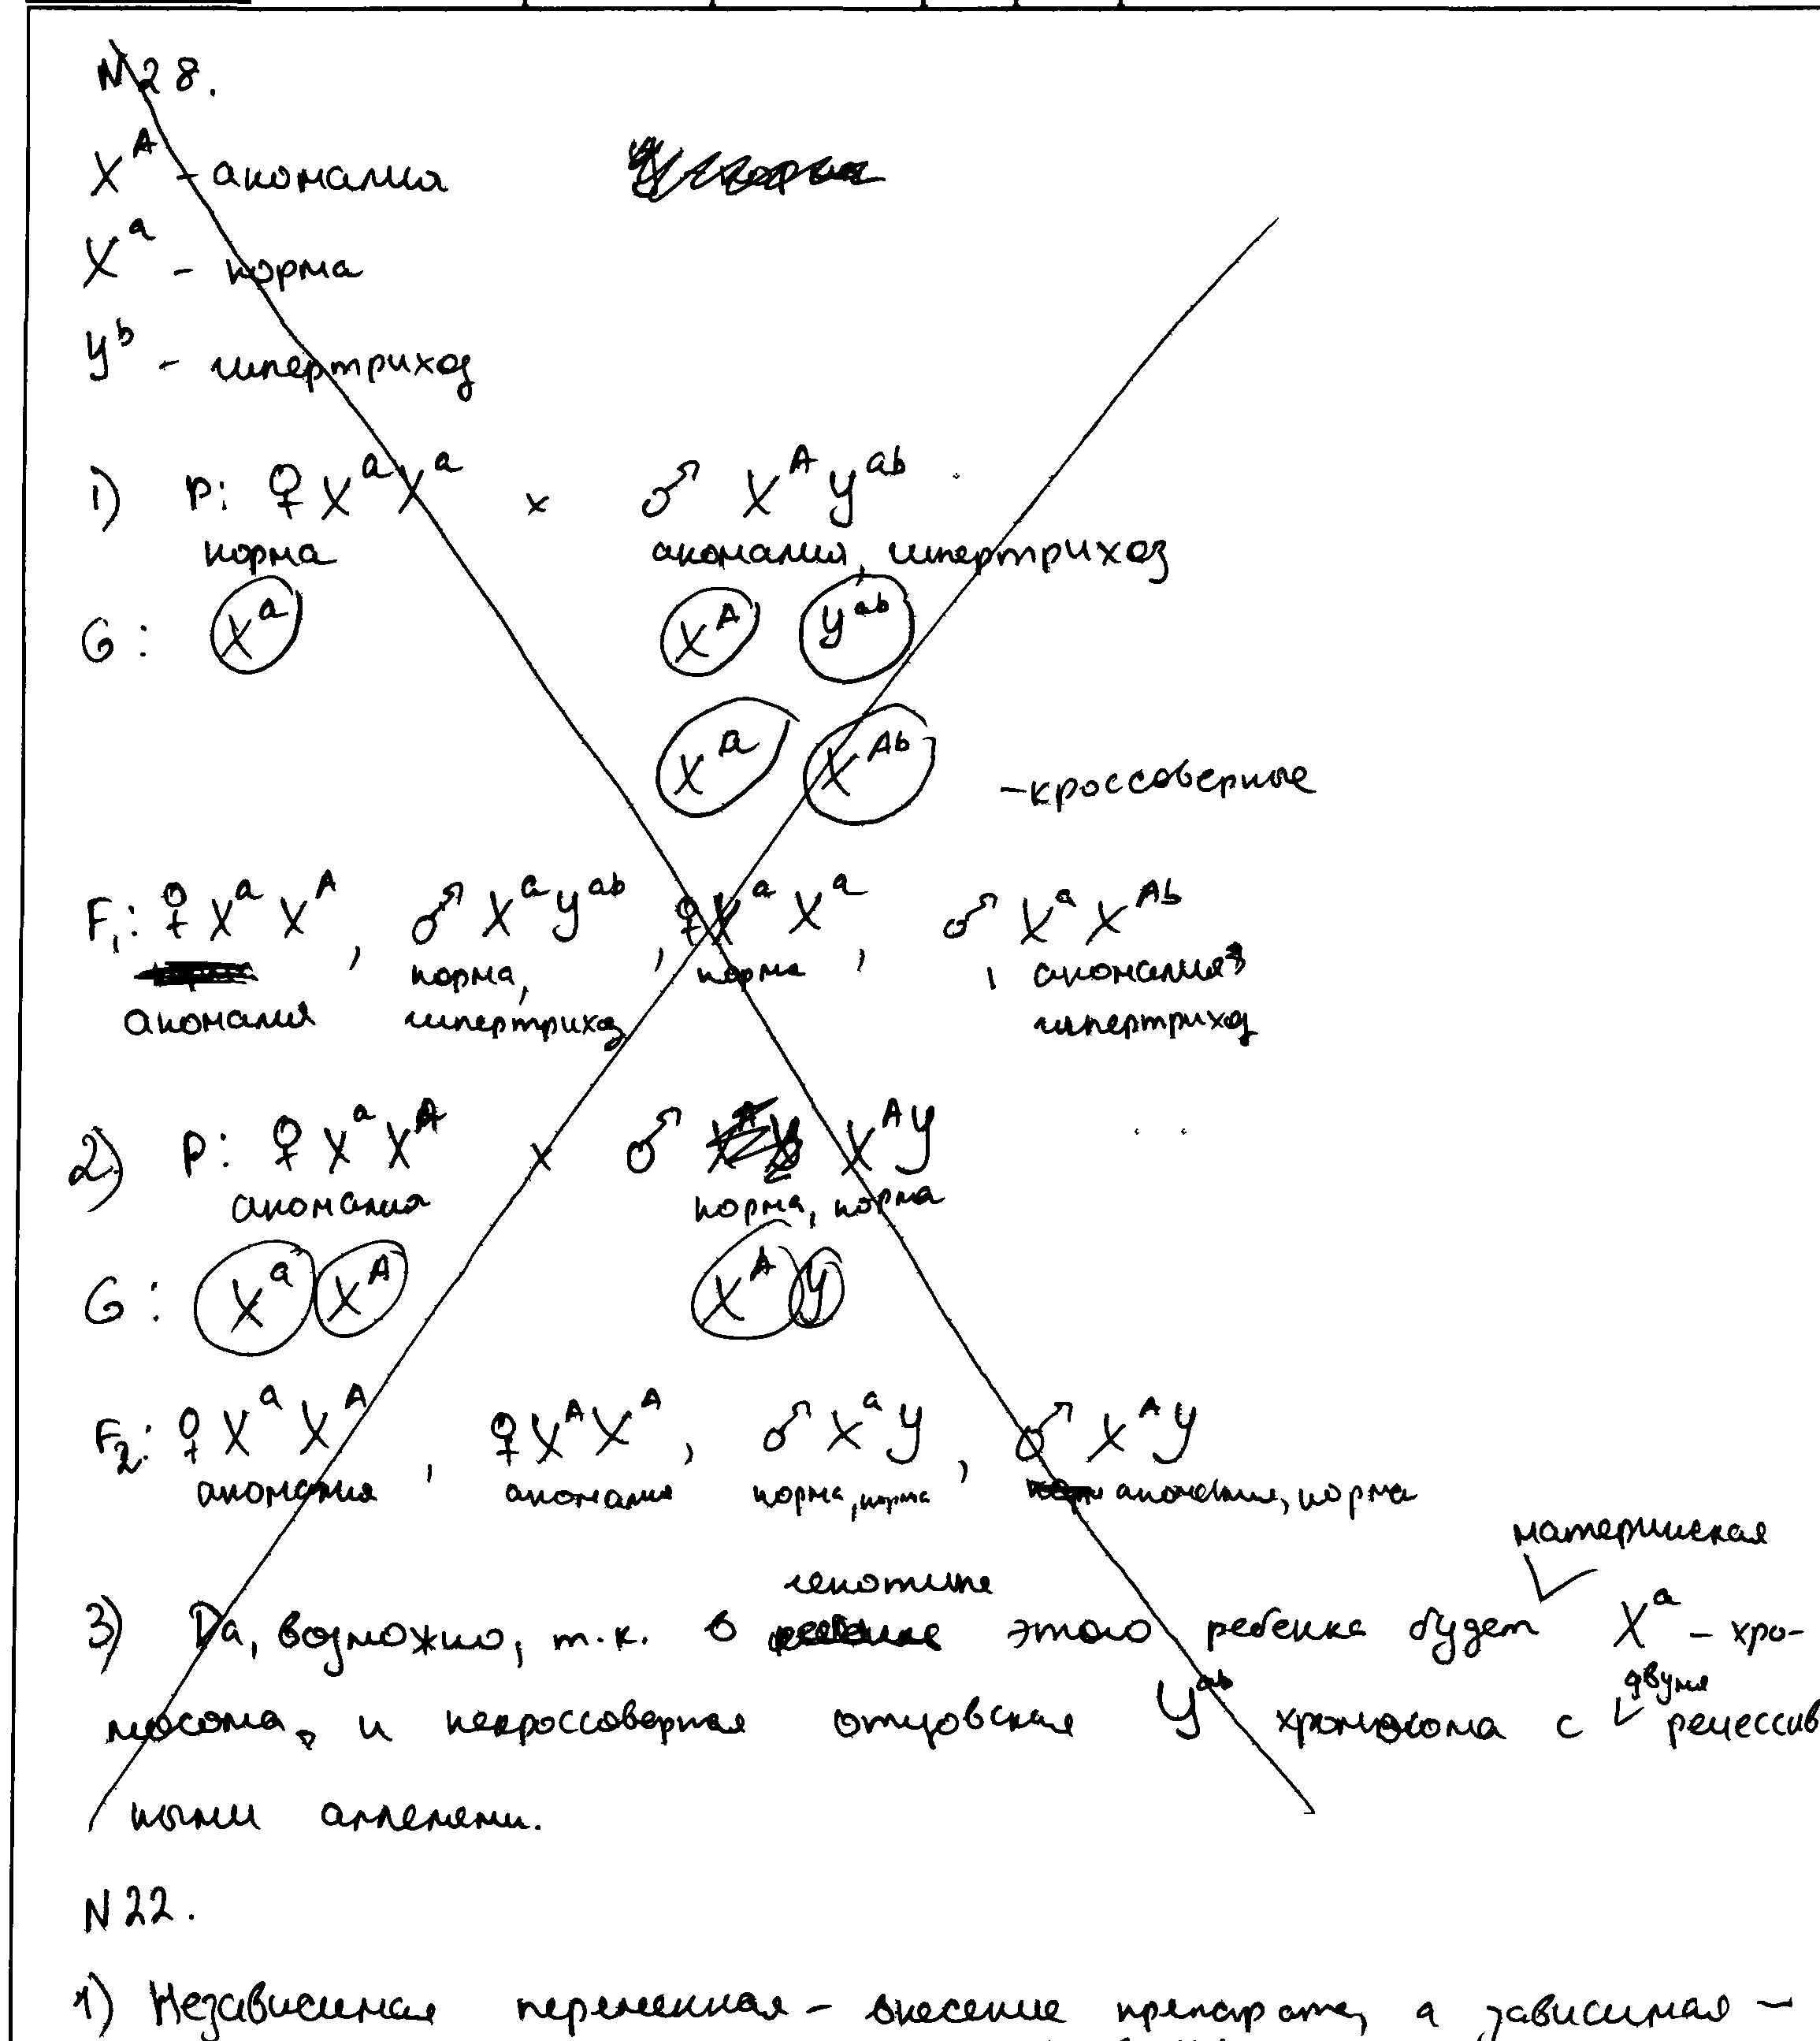 N28.
X^A - аномалия
X^a - норма
y^b - гипертрихоз
1) P: ♀ X^a X^a × ♂ X^A y^ab
норма аномалия, гипертрихоз
G: X^a X^A y^ab
X^a X^Ab - кроссоверные
F1: ♀ X^a X^A, ♂ X^a y^ab, ♀ X^a X^a, ♂ X^a X^Ab
норма, норма, аномалия
аномалия гипертрихоз гипертрихоз
2) P: ♀ X^a X^A × ♂ X^A y
аномалия норма, норма
G: X^a X^A X^A y
F2: ♀ X^a X^A, ♀ X^A X^A, ♂ X^a y, ♂ X^A y
аномалия аномалия норма, норма аномалия, норма
материнская
генотипе
3) Да, возможно, т.к. в этого ребенка будет X^a - хро-
двумя
мосома, и некроссоверная отцовская y^ab хромосома с рецессив
ными аллелями.
N22.
1) Независимая переменная - внесение препарата, а зависимая -